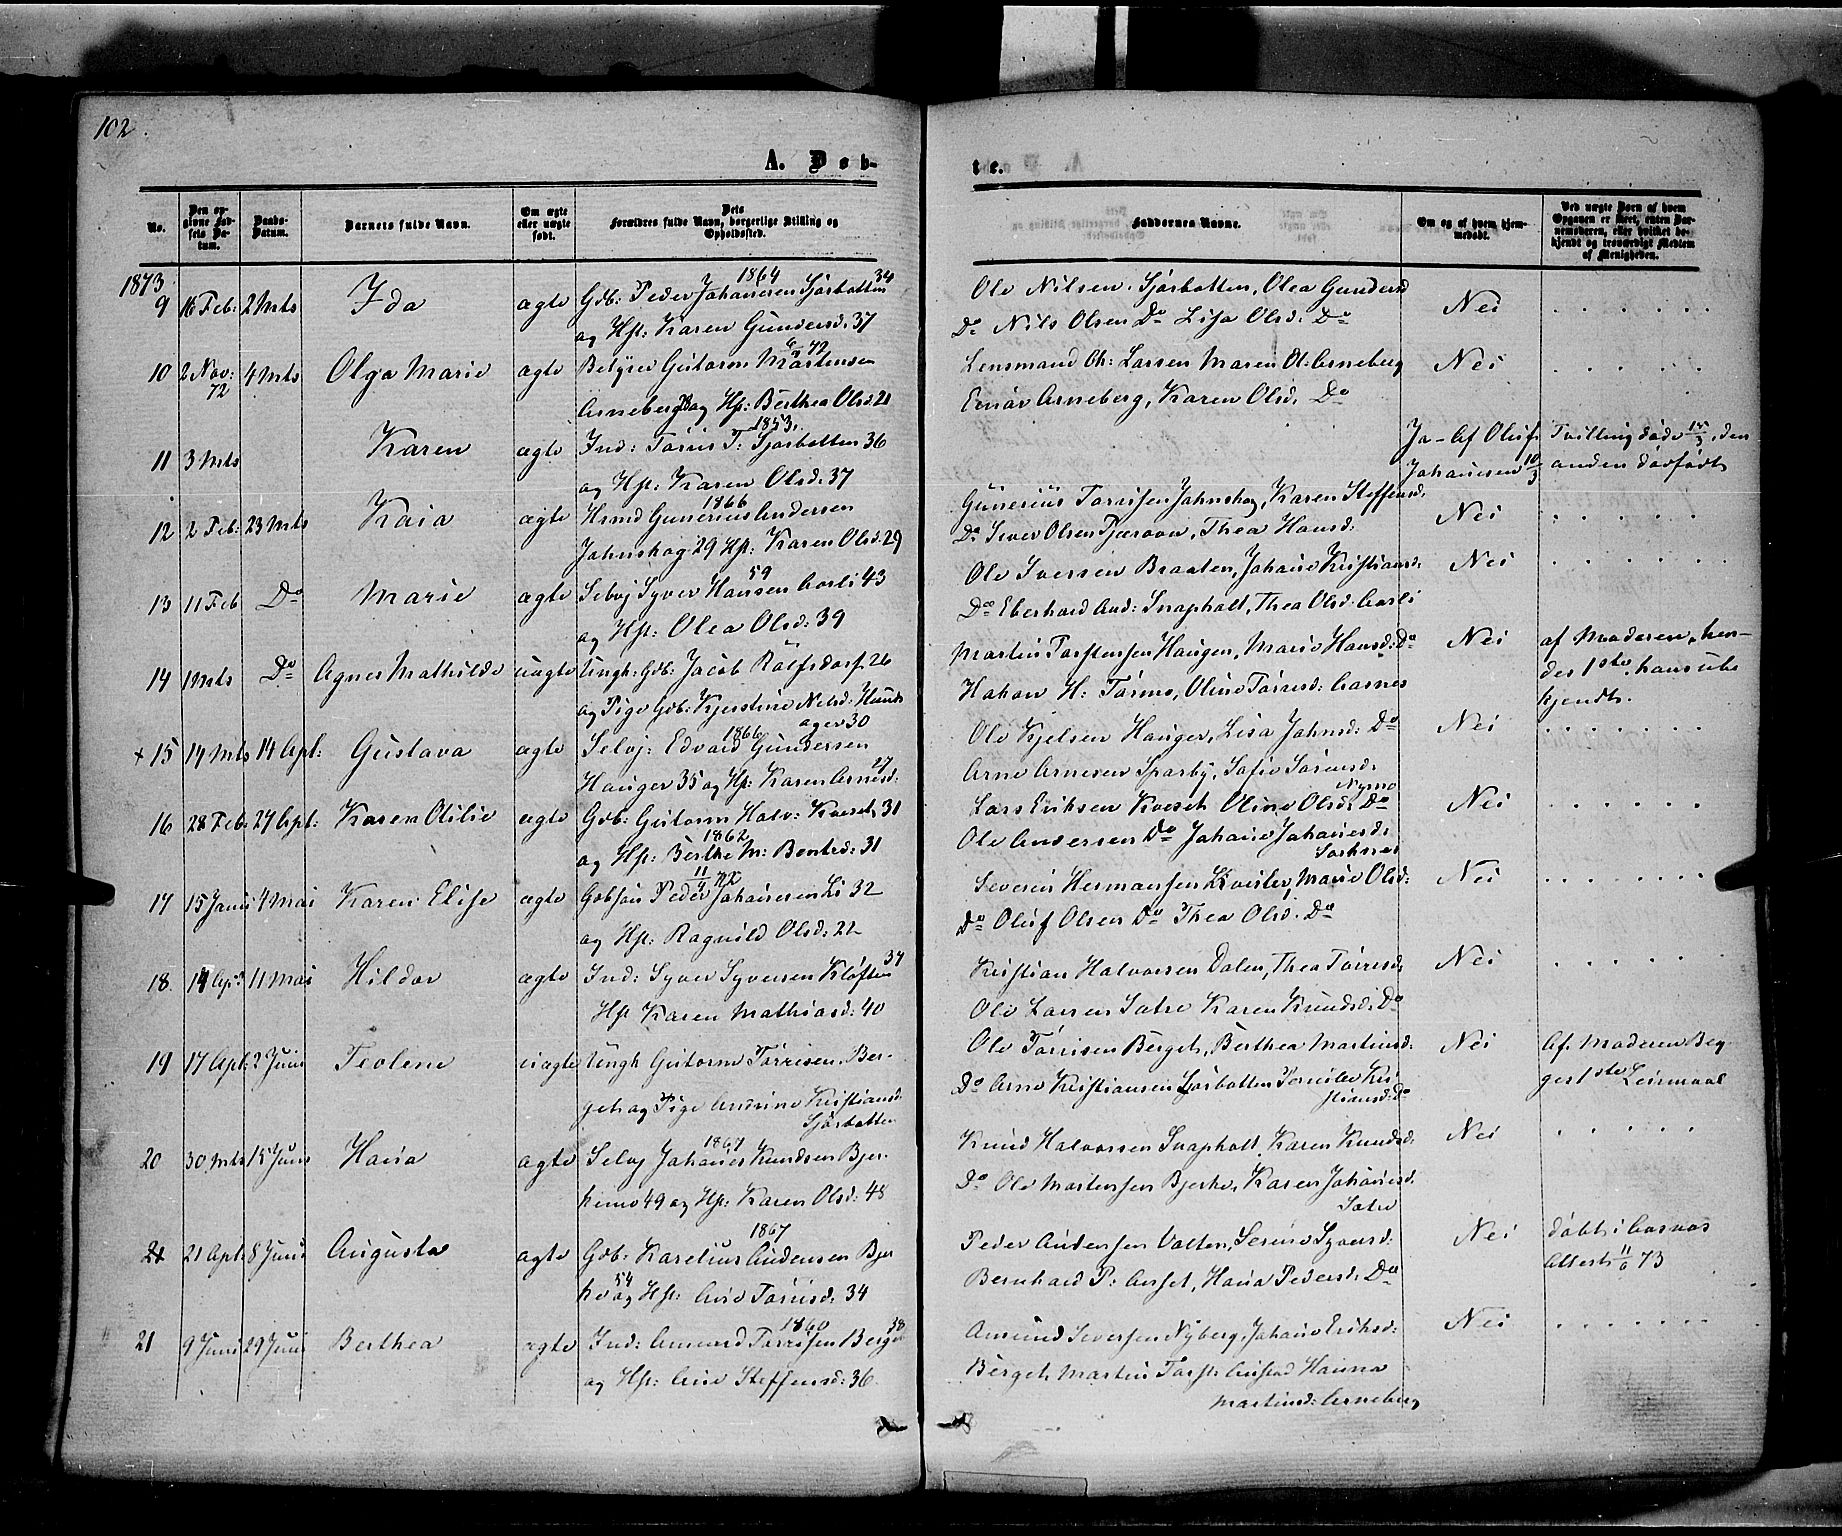 102.
A. Døb-
te.
No.
Den opgivne Fødsels Datum.
Daabs-Datum.
Barnets fulde Navn.
Om ægte eller uægte født.
Dets Forældres fulde Navn, borgerlige Stilling og Opholdssted.
Faddernes Navne.
Om og af hvem hjemmedøbt.
Ved uægte Børn af hvem Opgaven er skeet, enten Barnemoderen, eller hvilket bekjendt og troværdigt Medlem af Menigheden.
1873
9 16 Feb: 2 Mts Ida ægte Gdb: Peder Johannesen Sjørbotten 34 1864
og Hst: Karen Gundersd. 37
Ole Nilsen Sjørbotten, Olea Gundersd
Do Nils Olsen Do Lisa Olsd. Do
Nei
10 2 Nov: 72 4 Mts Olga Marie ægte Guttorm Mortensen
Arneberg og Hst: Berthea Olsd. 21
Lensmand Ch: Larsen Maren O: Arneberg
Einar Arneberg, Karen Olsd. Do
Nei
11 3 Mts Karen ægte Ind: Tøris T: Sjørbotten 36 1853
og Hst: Karen Olsd. 37
Ja - Af Oluf
Johannesen 10/3
Tvilling døde 15/3, den
anden dødfødt
12 2 Feb: 23 Mts Kaia ægte Hsmd Gunerius Andersen 1866
Johnshag 29 Hst: Karen Olsd. 29
Gunerius Torrisen Johnshag, Karen Steffensd.
Do Sever Olsen, Thea Hansd:
Nei
13 11 Feb Do Marie ægte Selvj Syver Hansen Aasli 43 59
og Hst: Olea Olsd. 39
Ole Iversen Braaten, Johane Kristiansd:
Do Eberhard And: Snapholt, Thea Olsd. Aasli
Nei
14 1 Mts Do Agnes Mathilde uægte Ungk: Gdb: Jacob Rolfsdorf. 26
og Pige Gdb: Kjerstine Nilsd: Hauks
ager 30
Martin Torstensen Haugen, Marie Hansd: Do
Hakon H: Tørmo, Oline Tørisd: Aasnes
Nei
af Moderen, hen-
des 1ste, hans ube
kjendt.
+ 15 14 Mts 14 Apl: Gustava ægte Selvj: Edvard Gundersen 1866
Hauger 35 og Hst: Karen Arnesd: 27
Ole Kjelsen Hauger, Lisa Johnsd: Do
Arne Arnesen Sparby, Sofie Sørensd.
Nei
16 28 Feb: 27 Apl: Karen Otilie ægte Gdb: Guttorm Halv: Kveset 31
og Hst: Berthe M: Bentsd: 31 1862
Lars Eriksen Kveset Oline Olsd. Do Nyrno
Ole Andersen Do Johane Johanesd:
Nei
17 15 Janu 4 Mai Karen Elise ægte Gdbsøn Peder Johannesen Li 32
og Hst: Ragnild Olsd: 22
Severin Hermansen Kvisler, Marie Olsd:
Do Oluf Olsen Do Thea Olsd. Do
Nei
18. 14 Apl 11 Mai Hildor ægte Ind: Syver Syversen Kløften 37
Hst Karen Mathiasd: 40
Kristian Halvorsen Dalen, Thea Tørresd.
Ole Larsen Satre Karen Knudsd: Do
Nei
19 17 Apl: 2 Juni Teolene uægte Ungk Guttorm Torrisen Ber-
get og Pige Andrine Kristiansd.
Sjørbotten
Ole Torrisen Berget, Berthea Martinsd:
Do Arne Kristiansen Sjørbotten Pernille Kri
stiansd: Do
Nei
Af Moderen Beg
ges 1ste Leiermaal
20 30 Mts 15 Juni Hana ægte Selvj Johanes Knudsen Bjer- 1867
kemo 49 og Hst: Karen Olsd: 48
Knud Halvorsen Snapholt, Karen Knudsd:
Do Ole Mortensen Bjerke, Karen Johanesd.
Satre
Nei
21 21 Apl 8 Juni Augusta ægte Gdb: Karelius Audensen Bjer 1867
ke 54 og Hst: Ane Tørrisd: 34
Peder Audensen Valten, Serine Syversd:
Bernhard P: Aaset, Hana Pedersd. Do
Nei
Døbt i Aasnes
Attest 11/6 73
21 9 Juni 29 Juni Berthea ægte Ind: Amund Torrisen Berget 38 1860
og Hst: Ane Steffensd: 36.
Amund Seversen Nyberg, Johane Eriksd:
Berget, Martin Torst: Austad Hanna
Martinsd: Arneberg
Nei